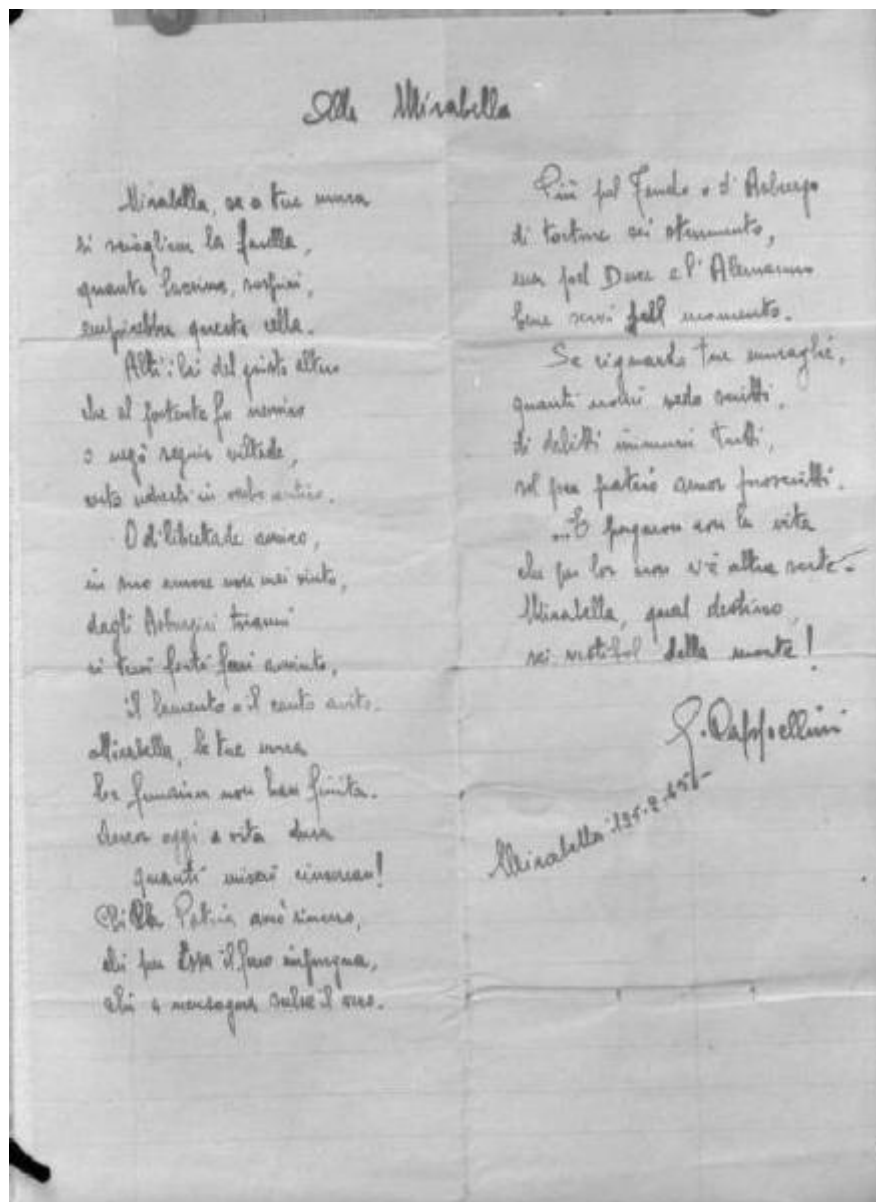 Alla Mirabella
Mirabella, se a tue mura
si sciogliesse la favella,
quante lacrime, sospiri,
empirebbe questa cella.
Alti: lai del giusto altero
che al potente fu nemico
o negò seguir viltade,
certo udresti in verbo antico.
O di libertade amico,
in suo amore non mai vinto,
dagli Asburgici tiranni
ai tuoi ferri avvinto,
il lamento o il canto avito.
Mirabella, le tue mura
la funzion non han finita.
Ancor oggi a vita dura
quanti miseri cinserran!
Chi la Patria amò sincero,
chi per Essa il ferro impugna,
chi a menzogna volse il vero.
Più pel Feudo o d'Asburgo
di torture sei strumento,
ma pel Duce e l'Alemanno
bene servi pell momento.
Se riguardo tue muraglie,
quanti nomi vedo scritti,
di delitti immuni tutti,
sol per patrio amor proscritti.
...E pagaron con la vita
che per lor non v'è altra sorte -
Mirabella, qual destino,
sei vestibol della morte!
G. Pappellini
Mirabella